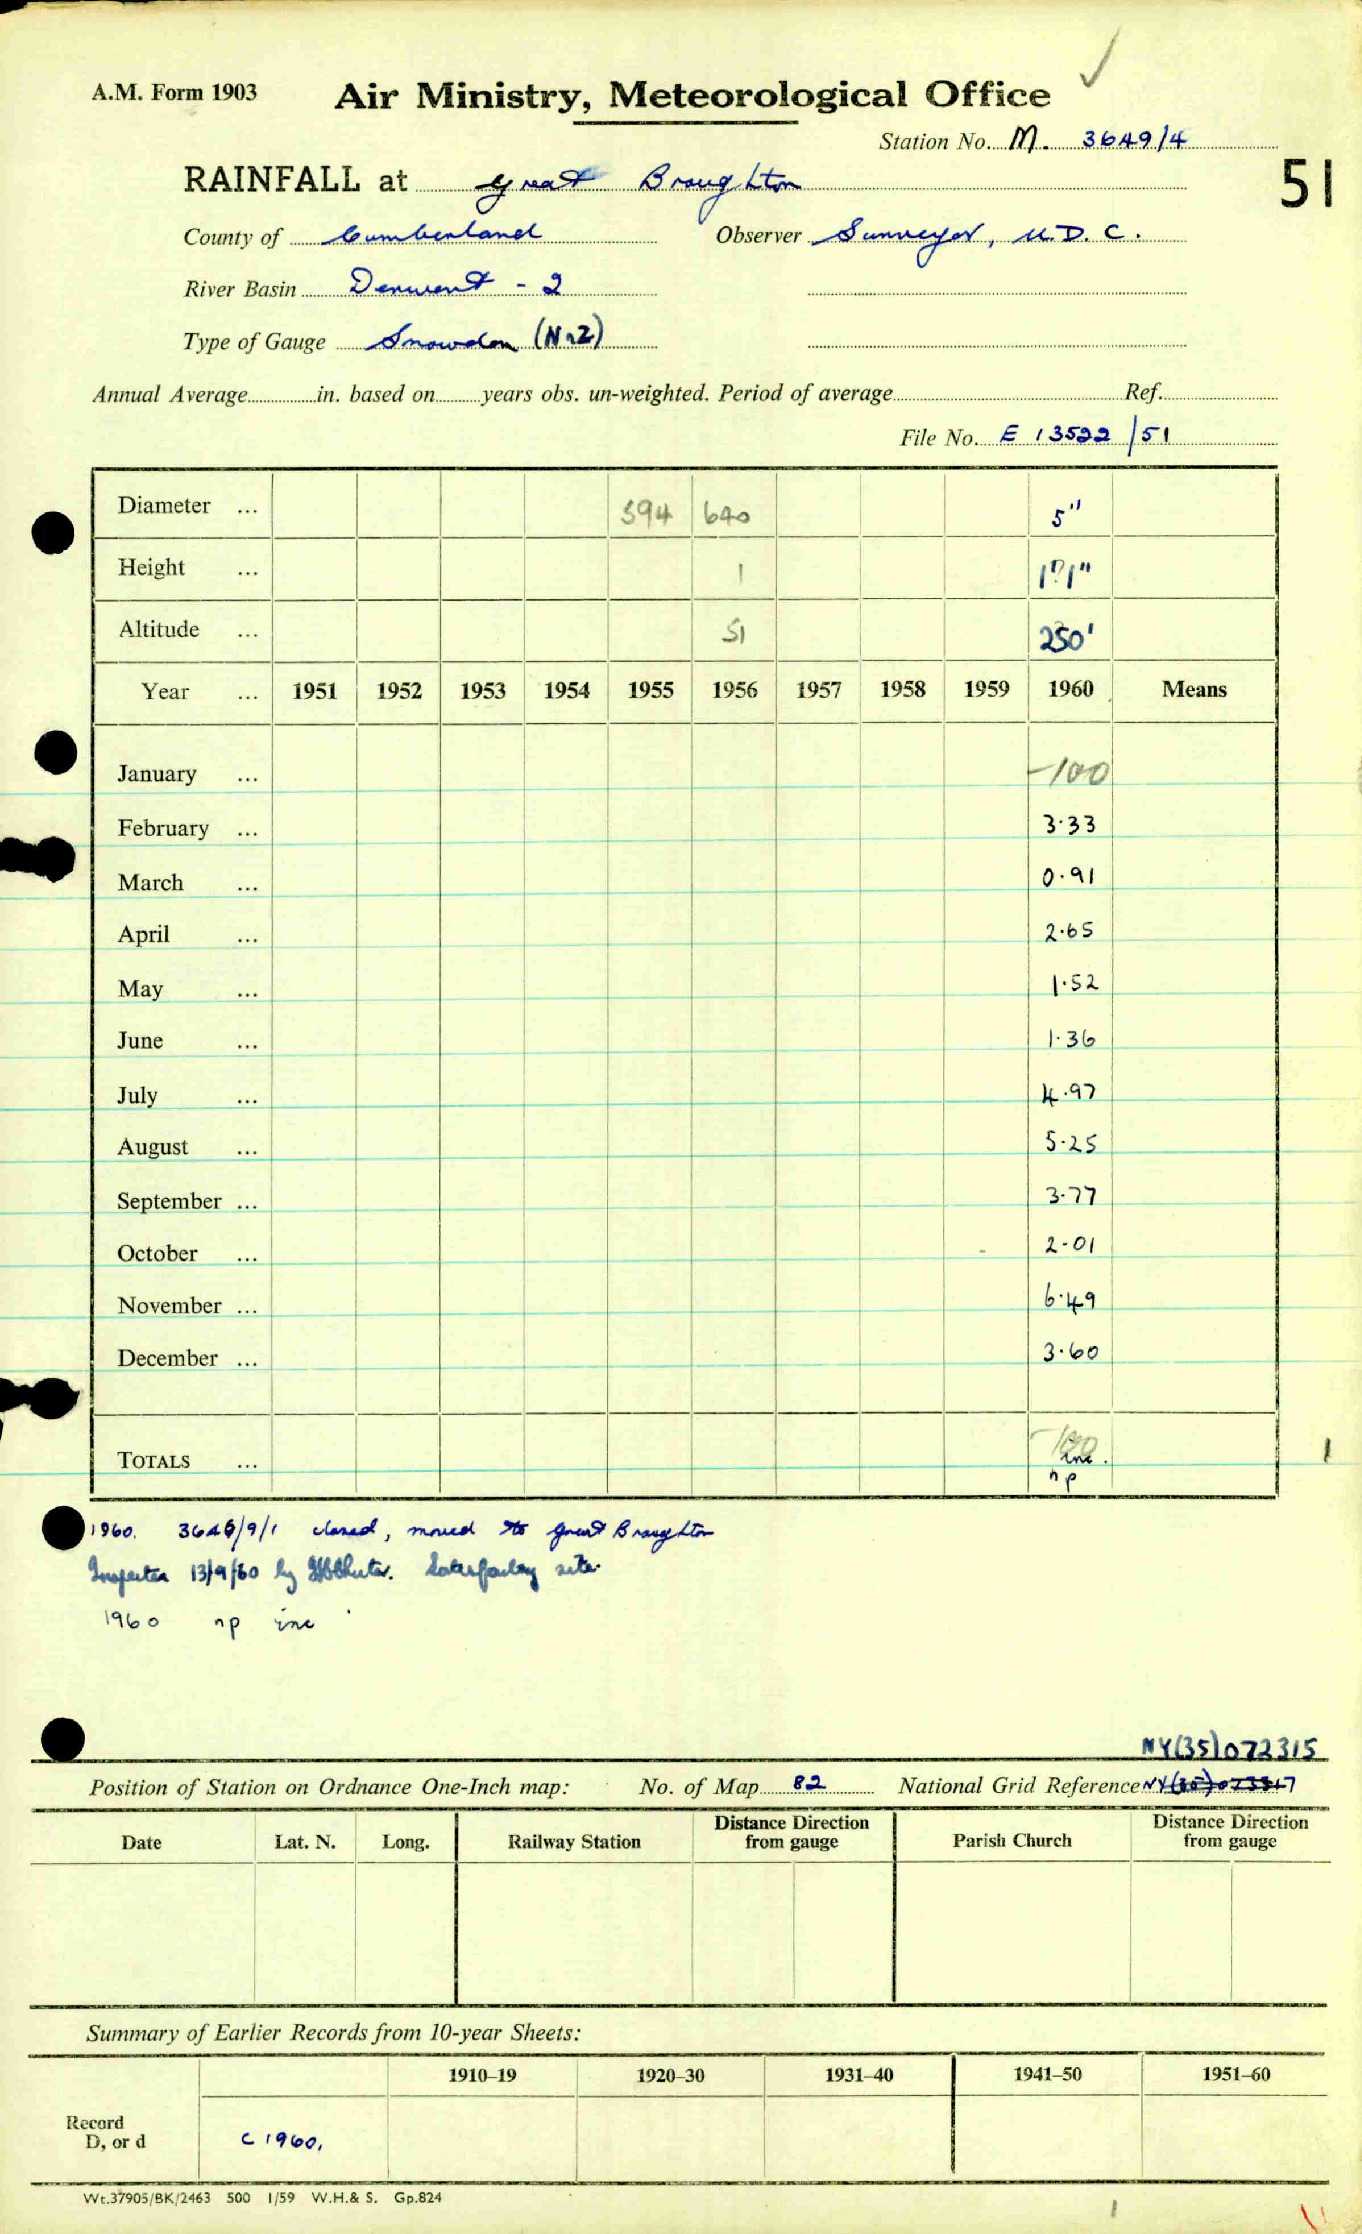 A.M. Form 1903 Air Ministry, Meteorological Office ✓
Station No. M. 3649/4
RAINFALL at Great Broughton 51
County of Cumberland Observer Surveyor, U.D.C.
River Basin Derwent - 2
Type of Gauge Snowdon (N.2)
Annual Average in. based on years obs. un-weighted. Period of average Ref.
File No. E 13522 /51
Diameter ... 594 640 5"
Height ... 1 1'1"
Altitude ... 51 250'
Year ... 1951 1952 1953 1954 1955 1956 1957 1958 1959 1960 Means
January ... -100
February ... 3.33
March ... 0.91
April ... 2.65
May ... 1.52
June ... 1.36
July ... 4.97
August ... 5.25
September ... 3.77
October ... 2.01
November ... 6.49
December ... 3.60
TOTALS ... -100 inc. 1
np
1960. 3646/9/1 closed, moved to Great Broughton
Inspected 13/9/60 by Satisfactory site.
1960 np inc
NY(35)072315
Position of Station on Ordnance One-Inch map: No. of Map 82 National Grid Reference
Date Lat. N. Long. Railway Station Distance Direction from gauge Parish Church Distance Direction from gauge
Summary of Earlier Records from 10-year Sheets:
1910-19 1920-30 1931-40 1941-50 1951-60
Record
D, or d C 1960.
Wt.37905/BK/2463 500 1/59 W.H.& S. Gp.824
1